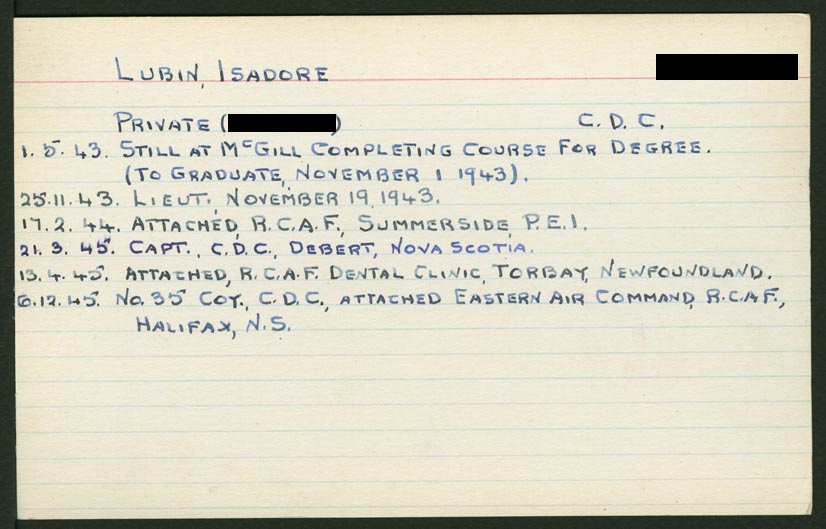 LUBIN, ISADORE
PRIVATE ( ) C.D.C.
1.5.43. STILL AT McGILL COMPLETING COURSE FOR DEGREE.
(TO GRADUATE, NOVEMBER 1 1943).
25.11.43. LIEUT. NOVEMBER 19, 1943.
17.2.44. ATTACHED, R.C.A.F., SUMMERSIDE P.E.I.
21.3.45. CAPT., C.D.C., DEBERT, NOVA SCOTIA.
13.4.45. ATTACHED, R.C.A.F. DENTAL CLINIC, TORBAY, NEWFOUNDLAND.
6.12.45. NO. 35 COY., C.D.C., ATTACHED EASTERN AIR COMMAND, R.C.A.F.,
HALIFAX, N.S.